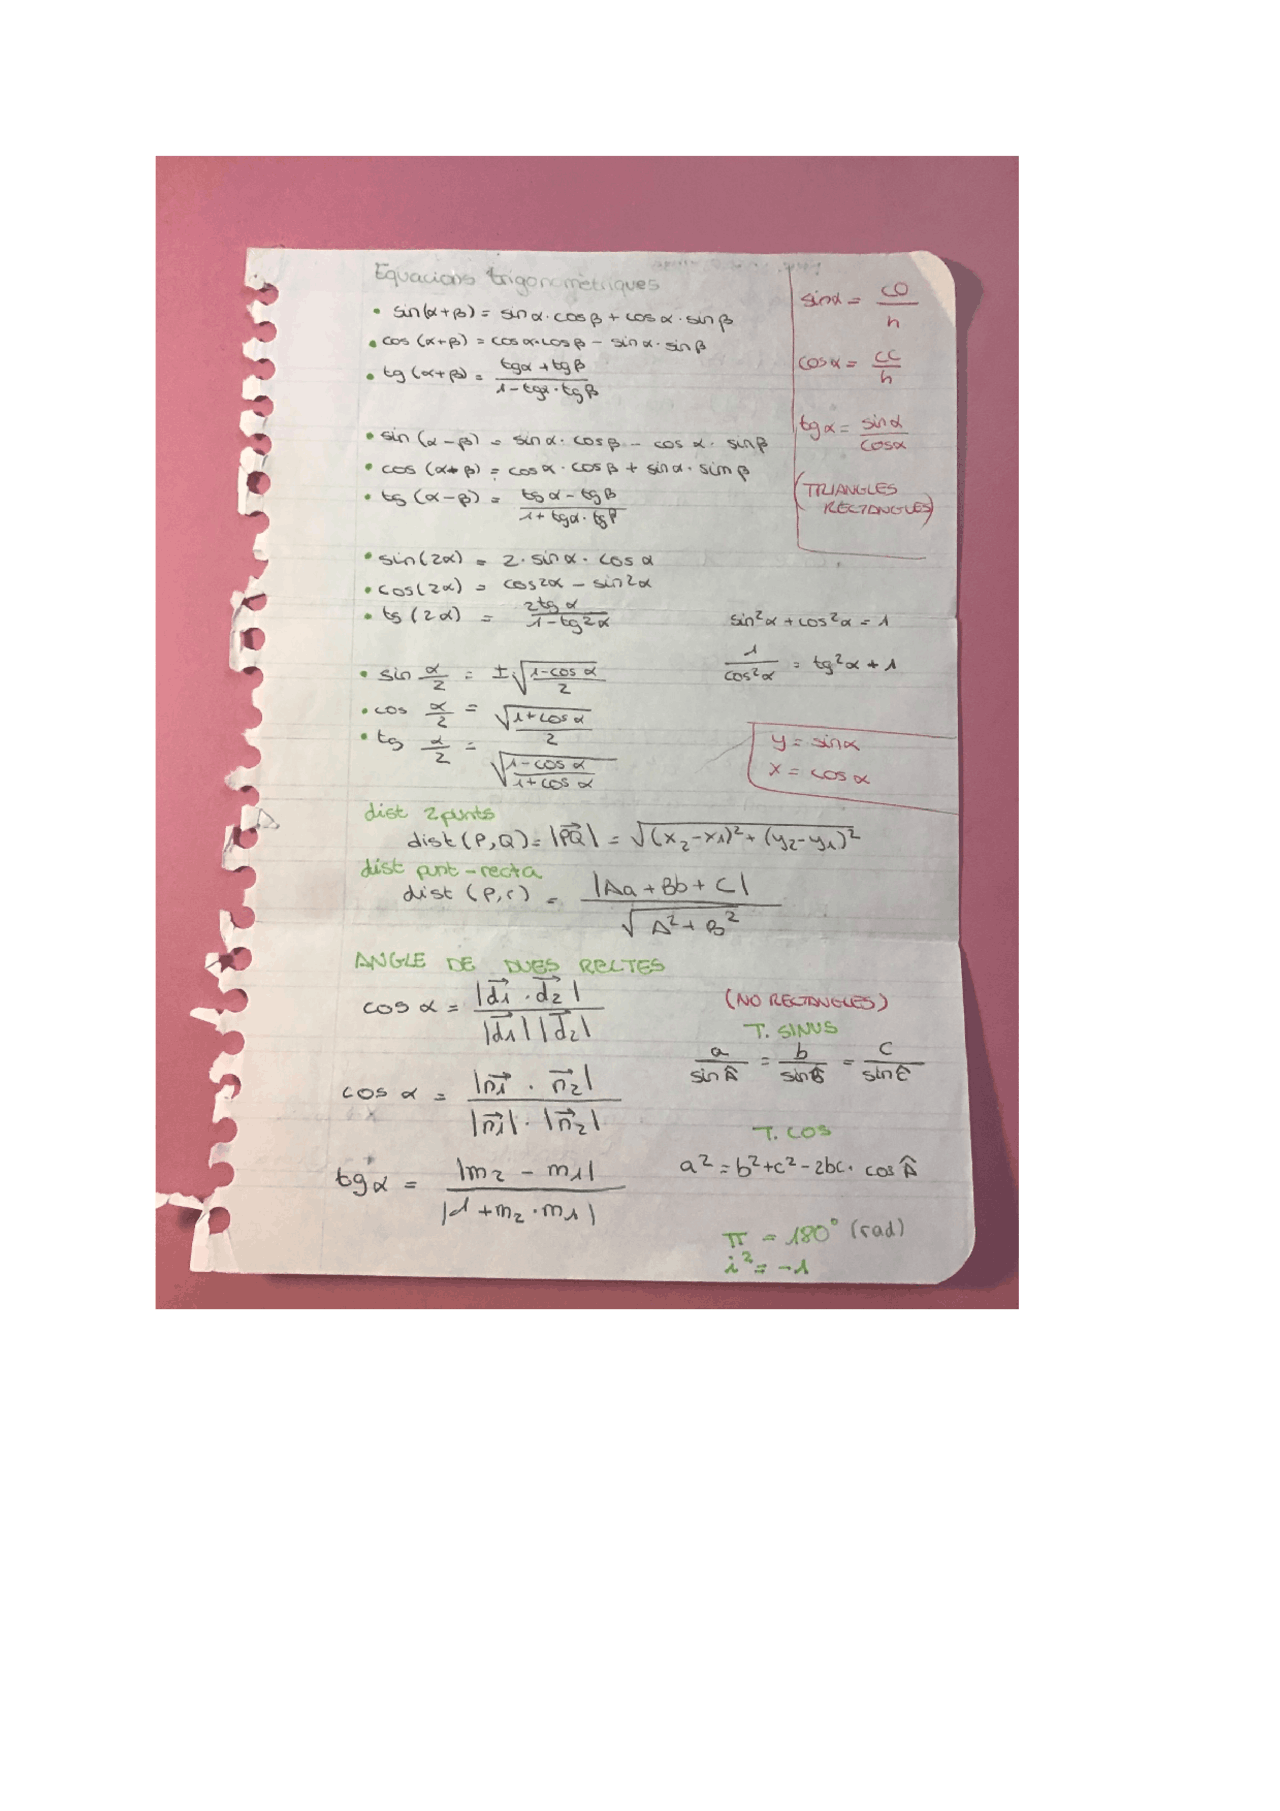 Equacions trigonomètriques
• sin(α+β) = sin α · cos β + cos α · sin β
• cos (α+β) = cos α · cos β – sin α · sin β
• tg (α+β) = (tgα + tgβ) / (1 – tgα · tgβ)
• sin (α – β) = sin α · cos β – cos α · sin β
• cos (α+β) = cos α · cos β + sin α · sin β
• tg (α – β) = (tg α – tg β) / (1 + tgα · tgβ)
• sin(2α) = 2 · sin α · cos α
• cos(2α) = cos2α – sin2α
• tg (2α) = 2tg α / (1 – tg2α)
• sin α/2 = ±√((1 – cos α)/2)
• cos α/2 = √((1 + cos α)/2)
• tg α/2 = √((1 – cos α)/(1 + cos α))
sinα = CO/h
cosα = CC/h
tgα = sinα/cosα
(TRIANGLES
RECTANGLES)
sin²α + cos²α = 1
1/cos²α = tg²α + 1
y = sinα
x = cosα
dist 2 punts
dist (P,Q) = |PQ⃗| = √((x₂ – x₁)² + (y₂ – y₁)²)
dist punt – recta
dist (P,r) = |Aa + Bb + C| / √(A² + B²)
ANGLE DE DUES RECTES
cos α = |d⃗₁ · d⃗₂| / |d⃗₁| |d⃗₂|
cos α = |n⃗₁ · n⃗₂| / |n⃗₁| · |n⃗₂|
tg α = |m₂ – m₁| / |1 + m₂ · m₁|
(NO RECTANGLES)
T. SINUS
a/sin Â = b/sin B̂ = c/sin Ĉ
T. COS
a² = b² + c² – 2bc · cos Â
π = 180° (rad)
i² = –1